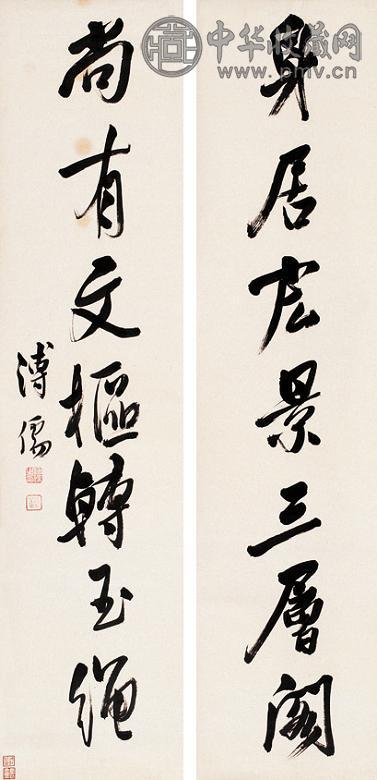 身居宏景三層閣
尚有文樞轉玉繩
溥儒
中华收藏网
www.pmv.cn